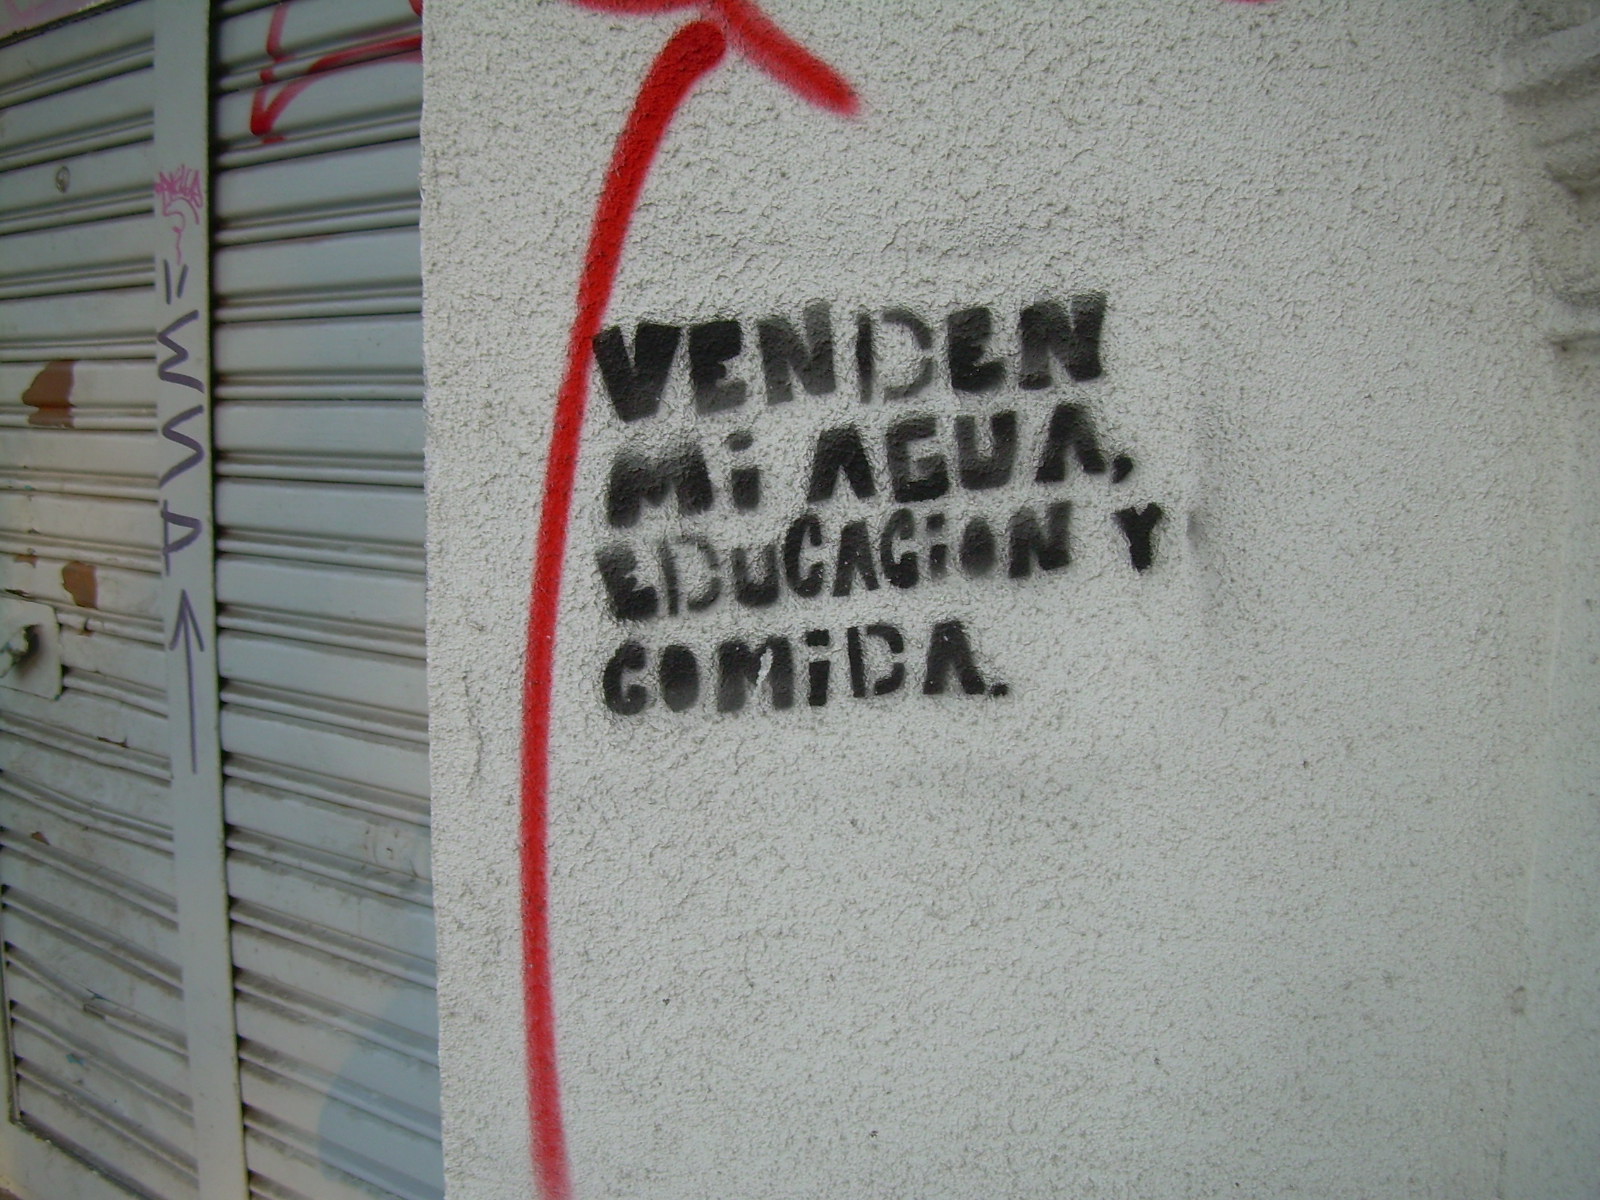 VENDEN
Mi AGUA,
EDUCACiON Y
COMiDA.